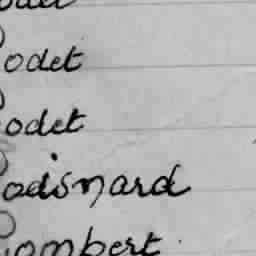 odet
odet
odet
odisnard
ombert